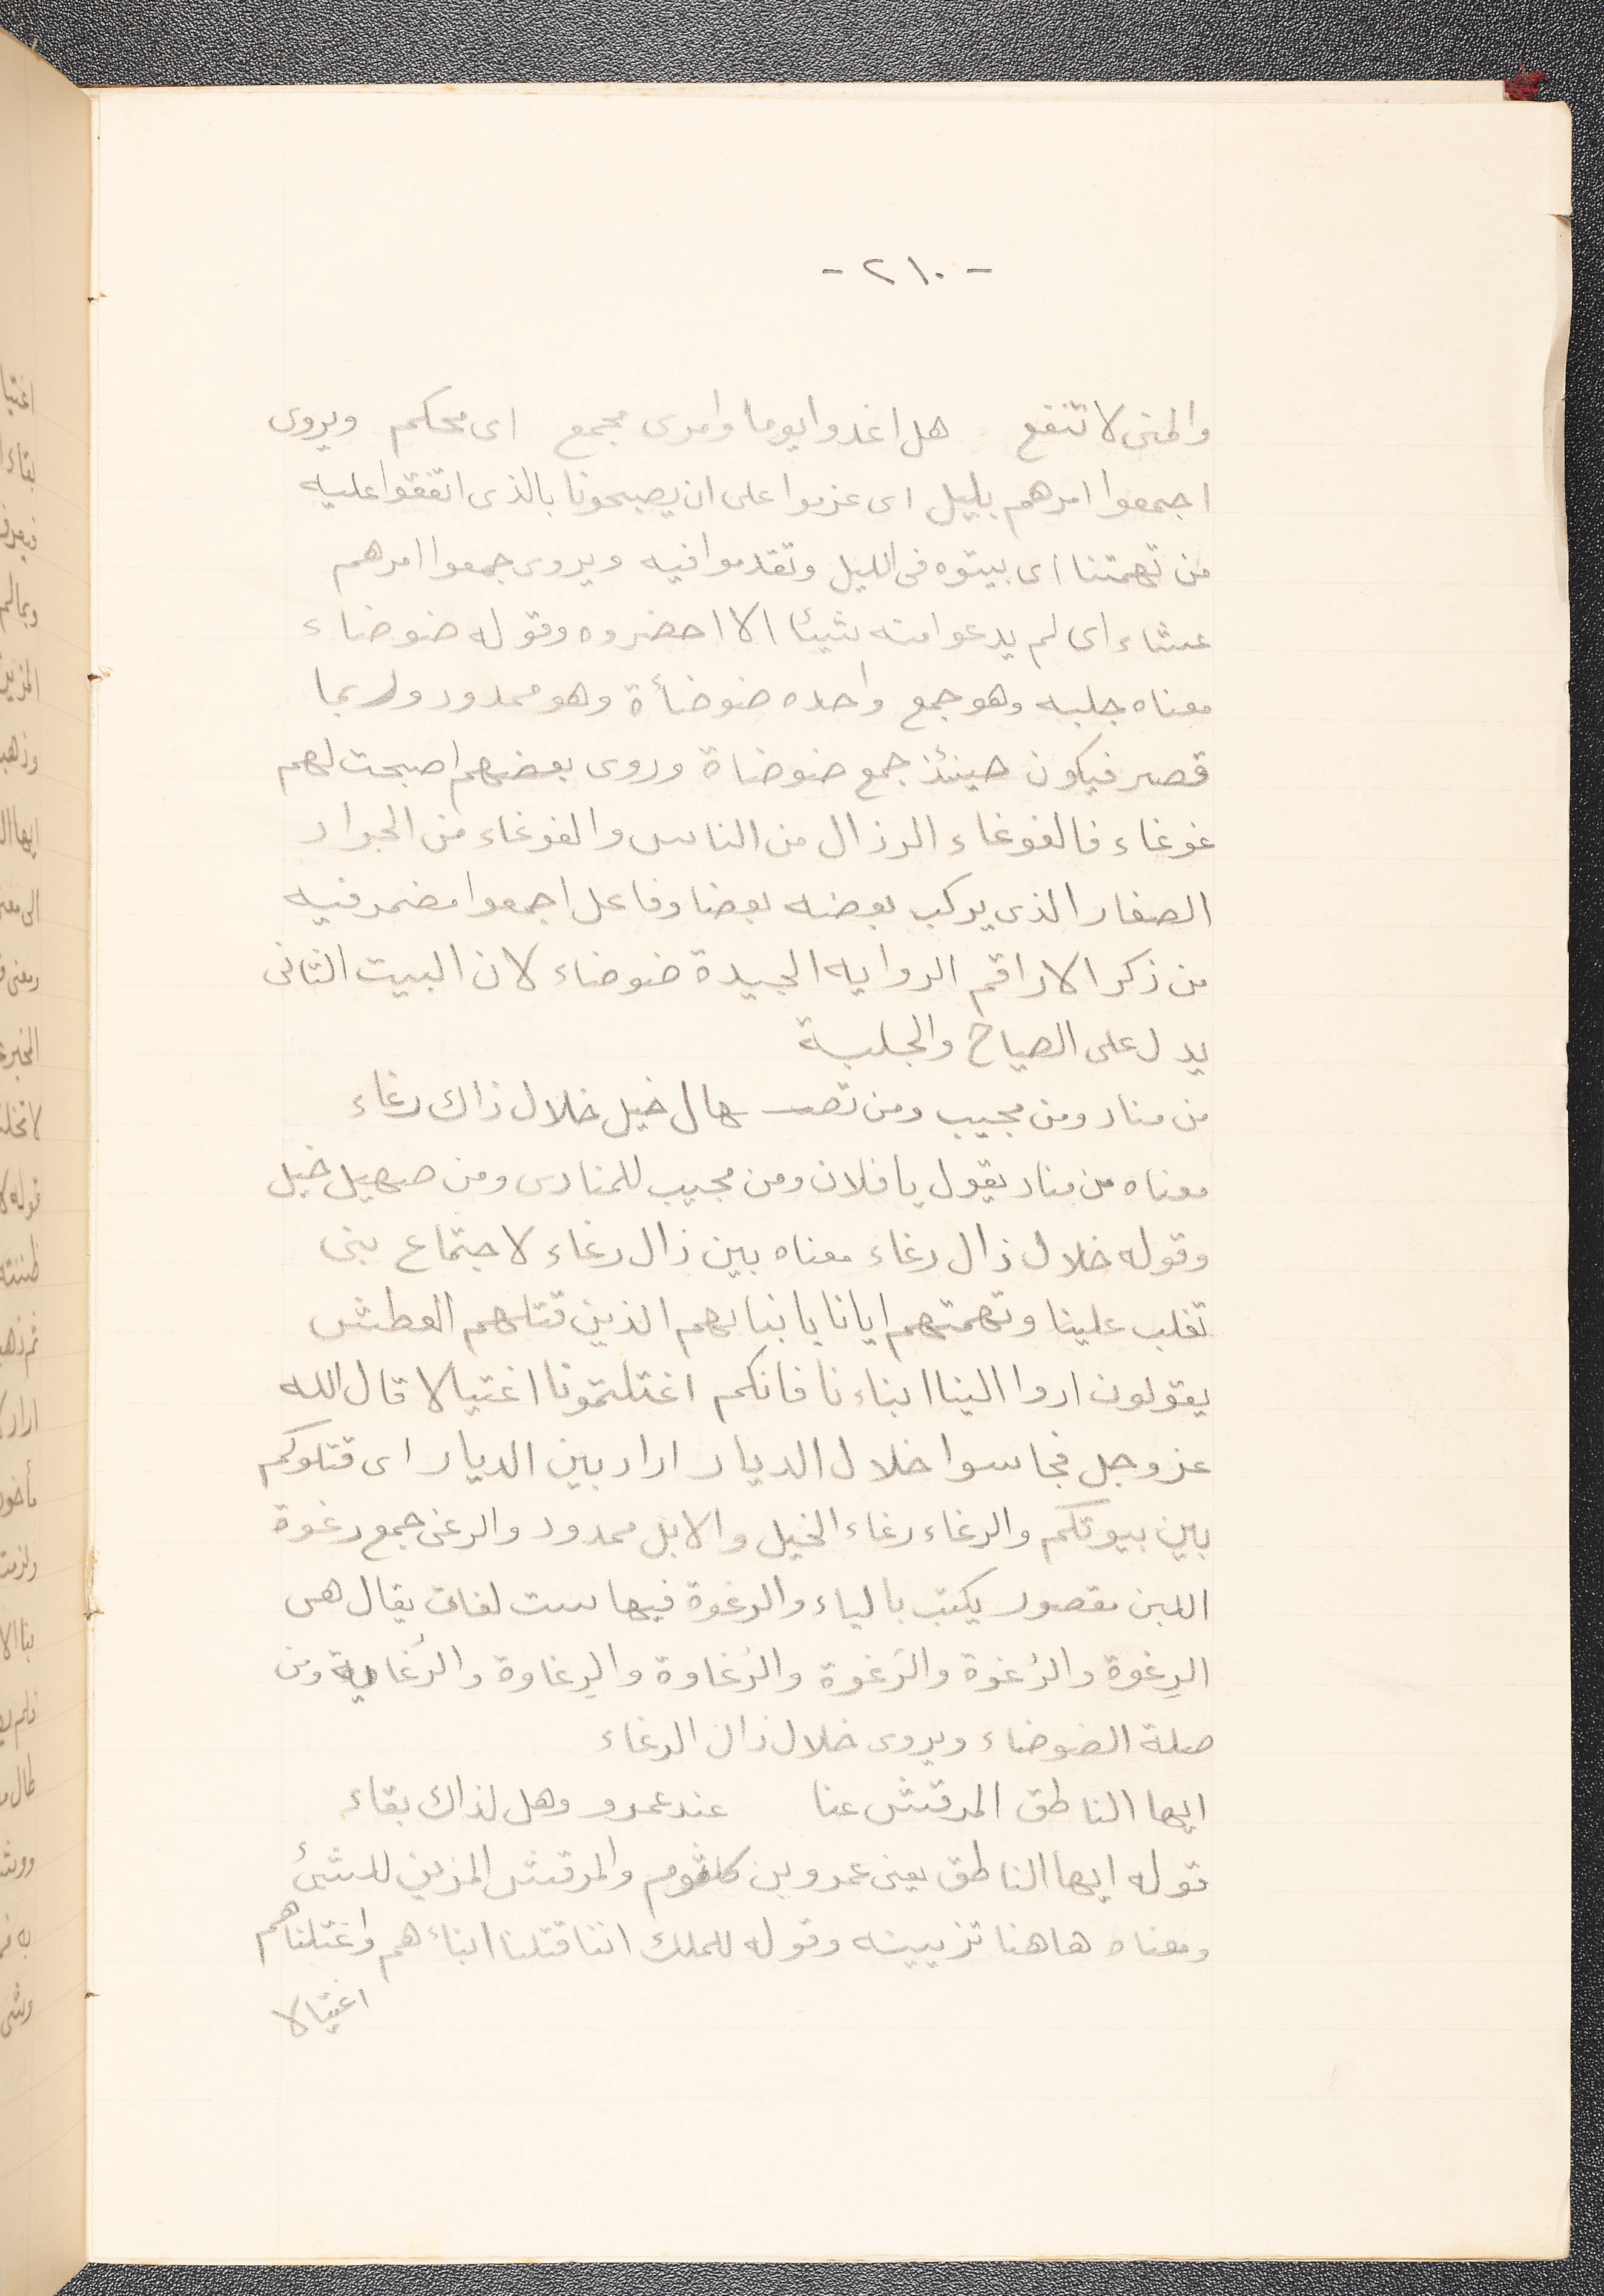 - ٢١٠ -
والمنى لا تنفع هل اغدوا يوما وامرى مجمع اى محكم ويروى
اجمعوا امرهم بليل اى عزموا على ان يصبحونا بالذى اتفقوا عليه
من تهمتنا اى بيتوه فى الليل وتقدموا فيه ويروى جمعوا امرهم
عشاء اى لم يدعوا منه شيئا الا احضروه وقوله ضوضاء
معناه جلبه وهو جمع واحده ضوضأة وهو ممدود ولربما
قصر فيكون حينئذ جمع ضوضاة وروى بعضهم اصبحت لهم
غوغاء فالغوغاء الرذال من الناس والغوغاء من الجراد
الصغار الذى يركب بعضه بعضا وفاعل اجمعوا مضمر فيه
من ذكر الاراقم الروايه الجيدة ضوضاء لان البيت الثانى
يدل على الصياح والجلبة
من مناد ومن مجيب ومن تصـ ـهال خيل خلال ذاك رغاء
معناه من مناد يقول يا فلان ومن مجيب للمنادى ومن صهيل خيل
وقوله خلال ذال رغاء معناه بين ذال رغاء لاجتماع بنى
تغلب علينا وتهمتهم ايانا بابنائهم الذين قتلهم العطش
يقولون اردا الينا ابناءنا فانكم اغتلتمونا اغتيالا قال الله
عز وجل فجاسوا خلال الديار اراد بين الديار اى قتلوكم
بين بيوتكم والرغاء رغاء الخيل والابل ممدود والرغى جمع رغوة
اللبن مقصور يكتب بالياء والرغوة فيها ست لغات يقال هى
الرِغوة والرُغوة والرَغوة والرُغاوة والرِغاوة والرُغاية ومن
صلة الضوضاء ويروى خلال ذان الرغاء
ايها الناطق المرقش عنا عند عمرو وهل لذاك بقاء
قوله ايها الناطق يعنى عمرو بن كلثوم والمرقش المزين للشئ
ومعناه هاهنا تزيينه وقوله للملك اننا قتلنا ابناءهم واغتلناهم
اغتيالا